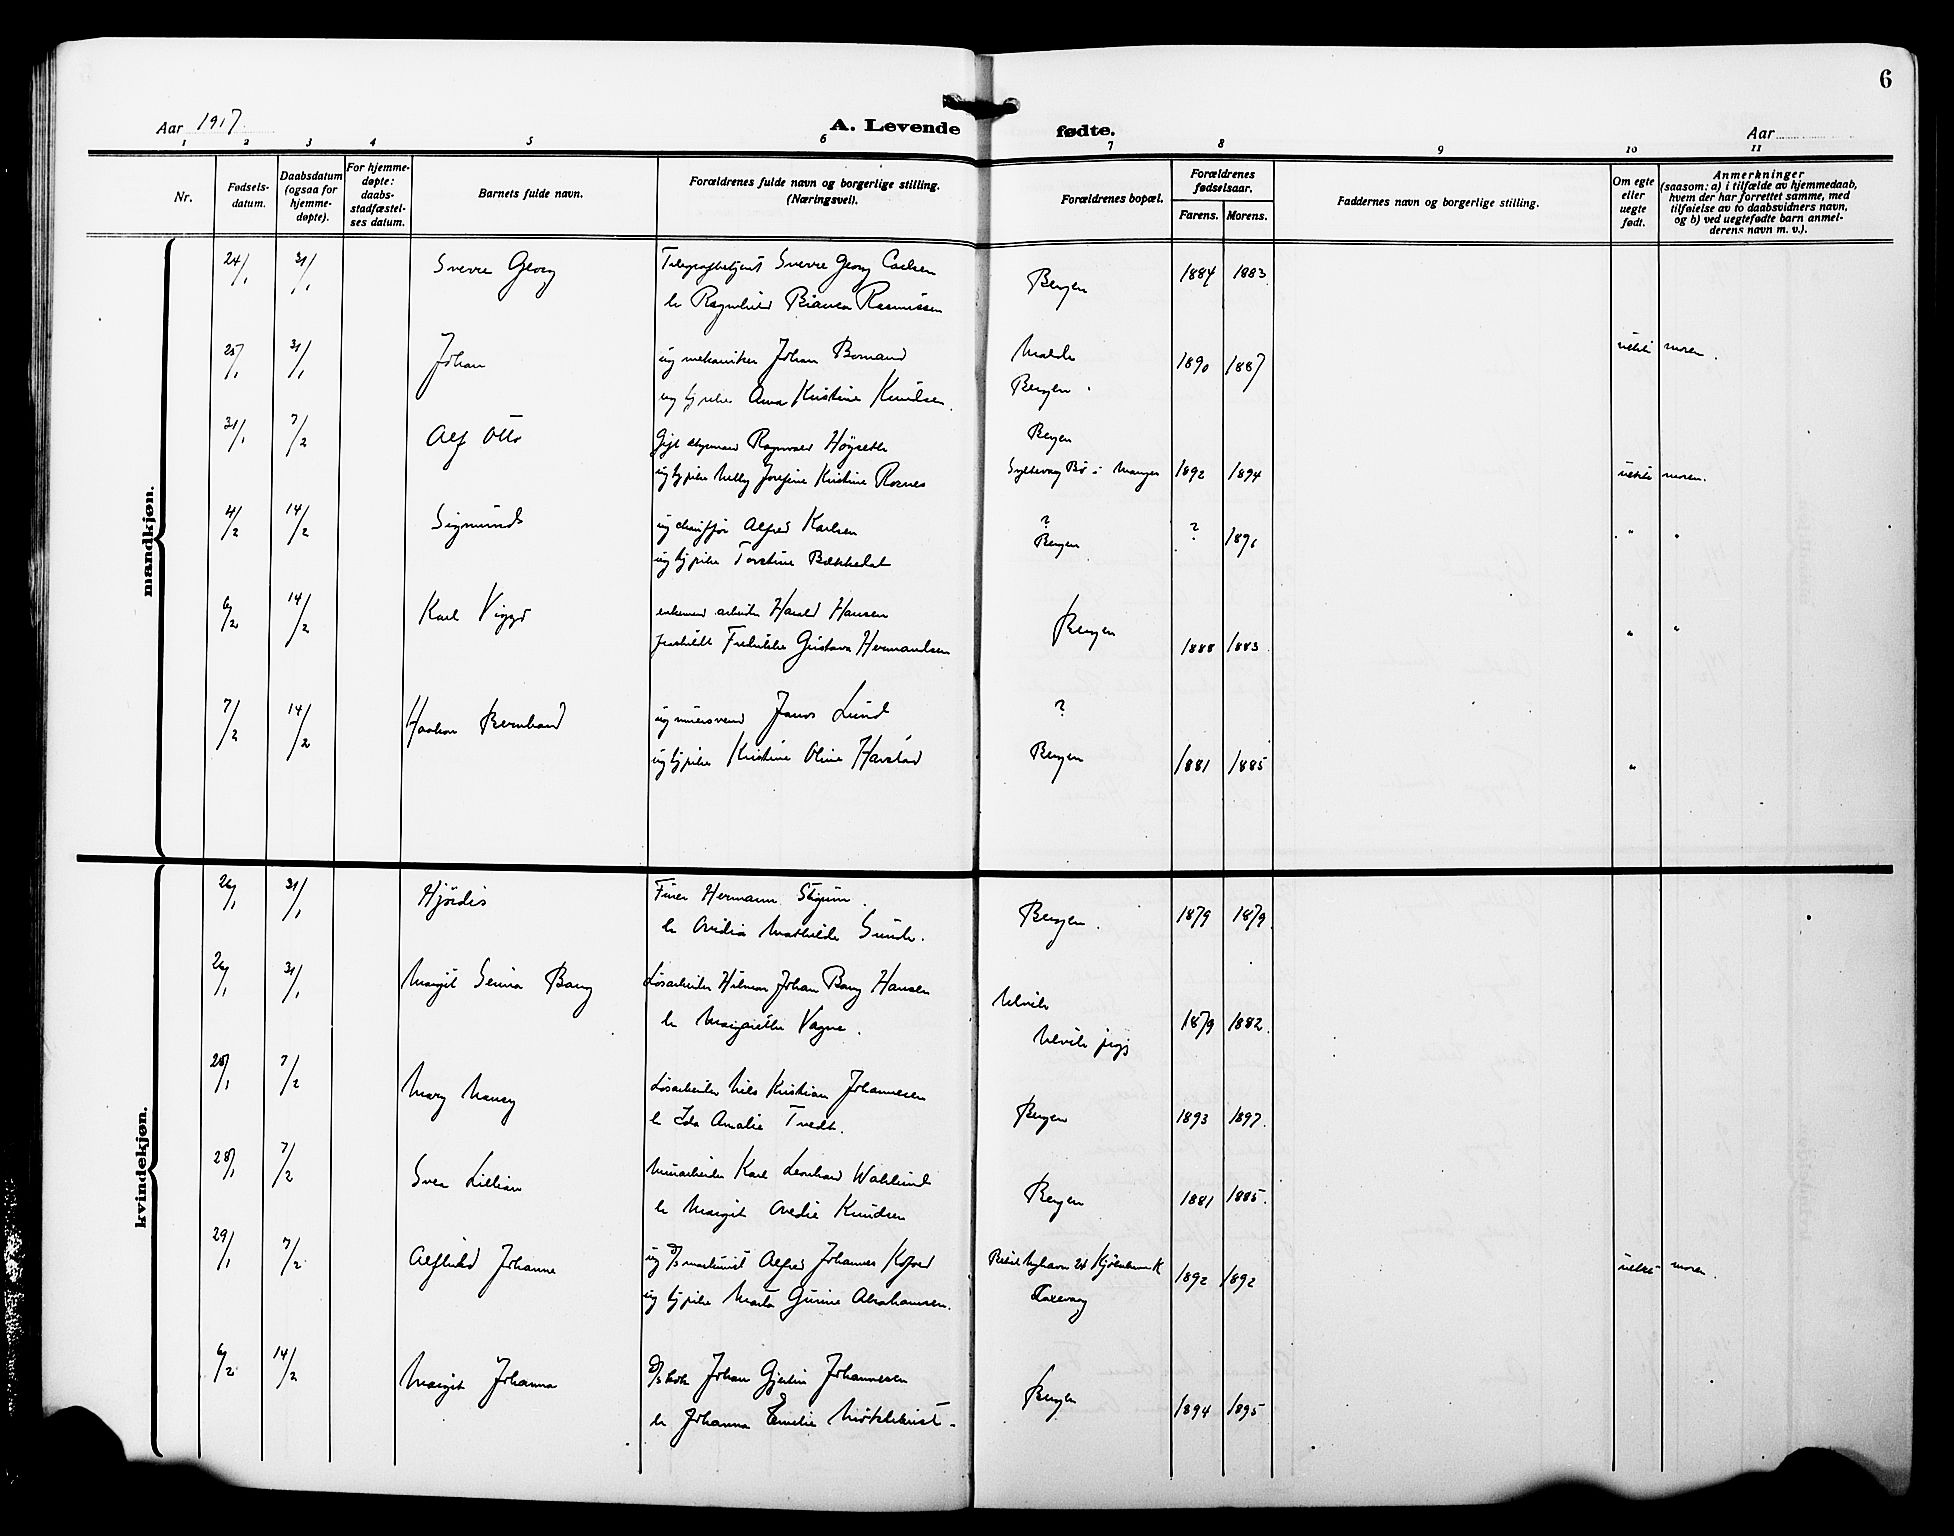 6
Aar 1917.
A. Levende fødte.
Aar
1 2 3 4 5 6 7 8 9 10 11
Nr.
Fødsels-
datum.
Daabsdatum
(ogsaa for
hjemme-
døpte).
For hjemme-
døpte:
daabs-
stadfæstel-
ses datum.
Barnets fulde navn.
Forældrenes fulde navn og borgerlige stilling.
(Næringsvei).
Forældrenes bopæl.
Forældrenes
fødselsaar.
Farens. Morens.
Faddernes navn og borgerlige stilling.
Om egte
eller
uegte
født.
Anmerkninger
(saasom: a) i tilfælde av hjemmedaab,
hvem der har forrettet samme, med
tilføielse av to daabsvidners navn,
og b) ved uegtefødte barn anmel-
derens navn m. v.).
mandkjøn.
24/1 31/1 Sverre Georg Telegrafbetjent Sverre Georg Carlsen Bergen 1884 1883
h. Ragnhild Bianca Rasmussen
25/1 31/1 Johan ug mekaniker Johan Molde 1890 1887 uekte moren.
ug tj.pike Anna Kristine Knudsen. Bergen.
31/1 7/2 Alf Otto Gift styrmand Ragnvald Høyseth Bergen
ug tj.pike Nelly Josefine Kristine Rosnes Bø i Manger 1892 1894 uekte moren.
4/2 14/2 Sigmund ug chauffør Alfred Karlsen ? ? 1896 " "
ug tj.pike Torstine Bækkedal Bergen
6/2 14/2 Karl Viggo enkemand arbeider Harald Hansen Bergen 1888 1883 " "
fraskildt Fredrikke Gustava Hermandsen
7/2 14/2 Haakon Bernhard ug mursvend Lund ?
ug tj.pike Kristine Oline Bergen 1881 1885 "
kvindekjøn.
26/1 31/1 Hjørdis Hermann Bergen. 1879 1879.
h. Mathilde Sunde.
26/1 31/1 Margit Bang Løsarbeider Hilmar Johan Bang Hansen Ulvik
h. Margrethe Vagne. Ulvik 1879 1882.
28/1 7/2 Mary Nancy Løsarbeider Nils Kristian Johannesen Bergen 1893 1897.
h. Ida Amalie Tvedt.
28/1 7/2 Svea Lillian Murarbeider Karl Leonhard Wahlund Bergen 1881 1885.
h. Margit Ovedie Knudsen
29/1 7/2 Alfhild Johanne ug D/S maskinist Alfred Johannes Kofoed Nyhavn Kjøbenhavn K 1892 1892 uekte moren.
ug tj.pike Marta Gurine Abrahamsen. Laxevaag
6/2 14/2 Margit Johanna D/S kok Johan Gjertin Johannesen Bergen 1894 1895
h. Johanna Emelie